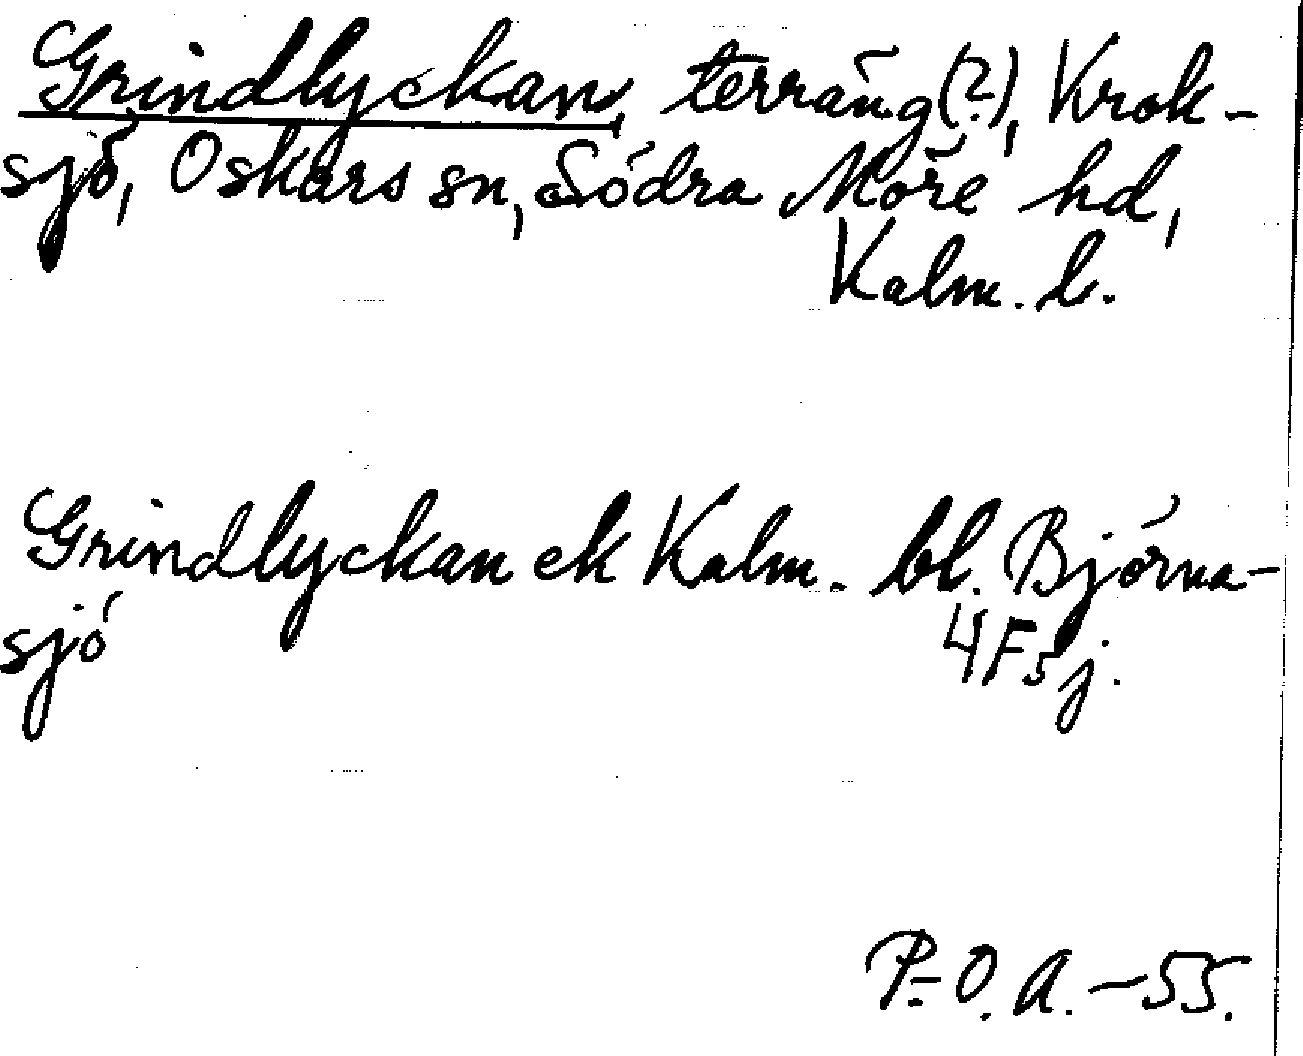 Grindlyckan, terräng(?), Krok-
sjö, Oskars sn, Södra Möre hd,
Kalm. l.
Grindlyckan ek Kalm. bl. Björna-
sjö 4F5j.
P.-O. A. - 55.